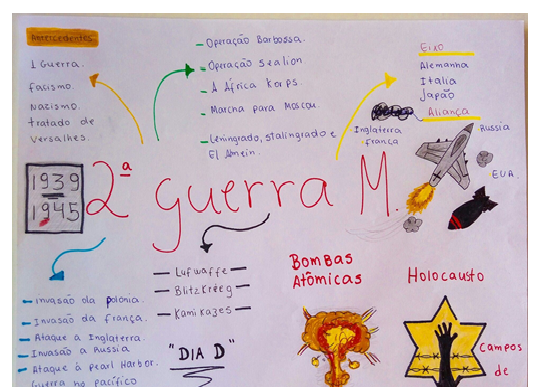 Antecedentes
1 Guerra.
Fascismo.
Nazismo.
tratado de
Versalhes.
Operação Barbossa.
Operação Sealion
A África Korps.
Marcha para Moscou.
Leningrado, Stalingrado e
El Almein.
Eixo
Alemanha
Italia
Japão
Aliança
Inglaterra
frança
Russia
EUA.
1939
1945
2ª guerra M.
Invasão da polônia.
Invasão da frança.
Ataque à Inglaterra.
Invasão a Russia
Ataque à pearl Harbor.
Guerra no pacífico
Lufwaffe
Blitzkrieg
Kamikazes
"DIA D"
Bombas
Atômicas
Holocausto
Campos
de